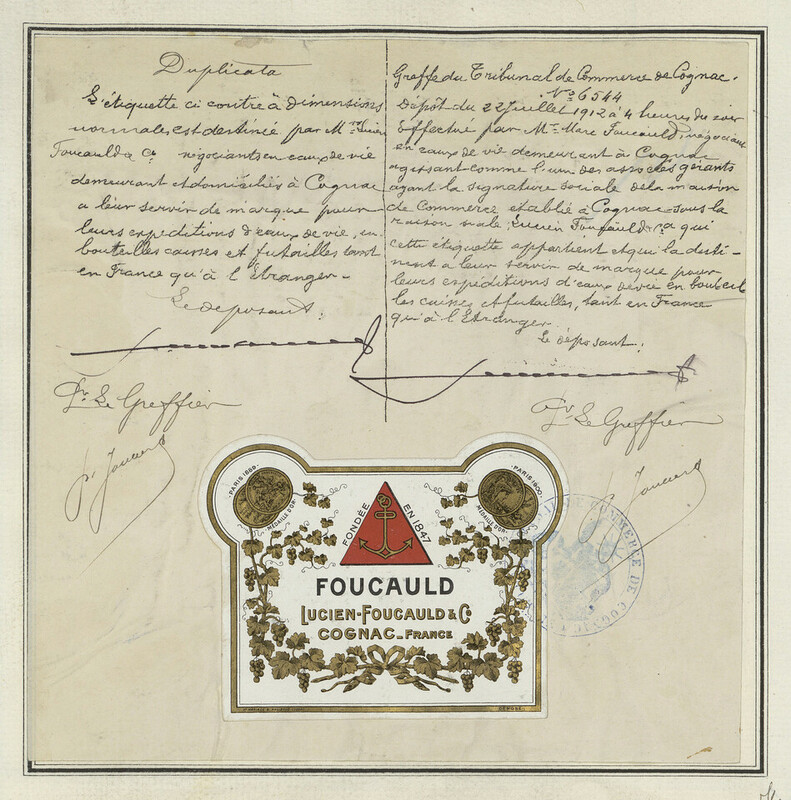 Duplicata
L'étiquette ci contre à dimensions
normales est destinée par Mrs Lucien
Foucauld & Co négociants en eaux de vie
demeurant et domiciliés à Cognac
a leur servir de marque pour
leurs expéditions d'eaux de vie, en
bouteilles caisses et futailles tant
en France qu'à l'Etranger.
Le déposant:
Pr Le Greffier
Greffe du Tribunal de Commerce de Cognac.
No 6544
Dépôt du 22 Juillet 1912 à 4 heures du soir
Effectué par Mr Marc Foucauld, négociant
en eaux de vie demeurant à Cognac
agissant comme l'un des associés gérants
ayant la signature sociale de la maison
de Commerce établie à Cognac sous la
raison Lucien Foucauld & Co à qui
cette étiquette appartient et qui la desti-
nent a leur servir de marque pour
leurs expéditions d'eaux de vie en bouteil
les caisses et futailles, tant en France
qu'à l'Etranger.
Le déposant:
Pr Le Greffier
PARIS 1889
MÉDAILLE D'OR
FONDÉE EN 1847
PARIS 1900
MÉDAILLE D'OR
FOUCAULD
LUCIEN-FOUCAULD & Co
COGNAC_FRANCE
DÉPOSÉ
COMMERCE DE COGNAC